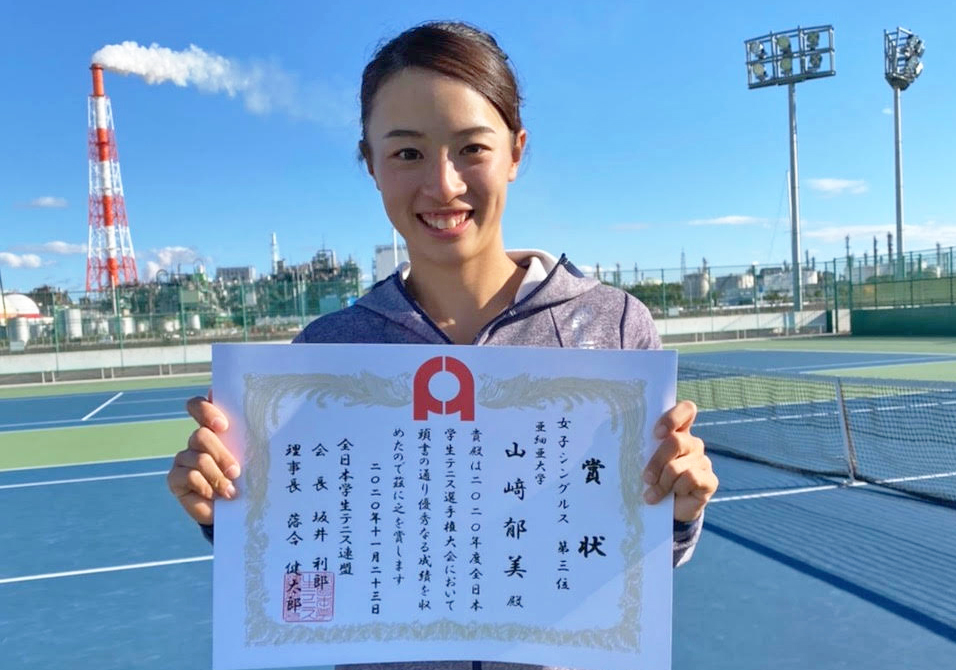 賞状
女子シングルス 第三位
亜細亜大学
山﨑郁美 殿
貴殿は二〇二〇年度全日本
学生テニス選手権大会において
頭書の通り優秀なる成績を収
めたので茲に之を賞します
二〇二〇年十一月二十三日
全日本学生テニス連盟
会長 坂井利郎
理事長 落合健太郎